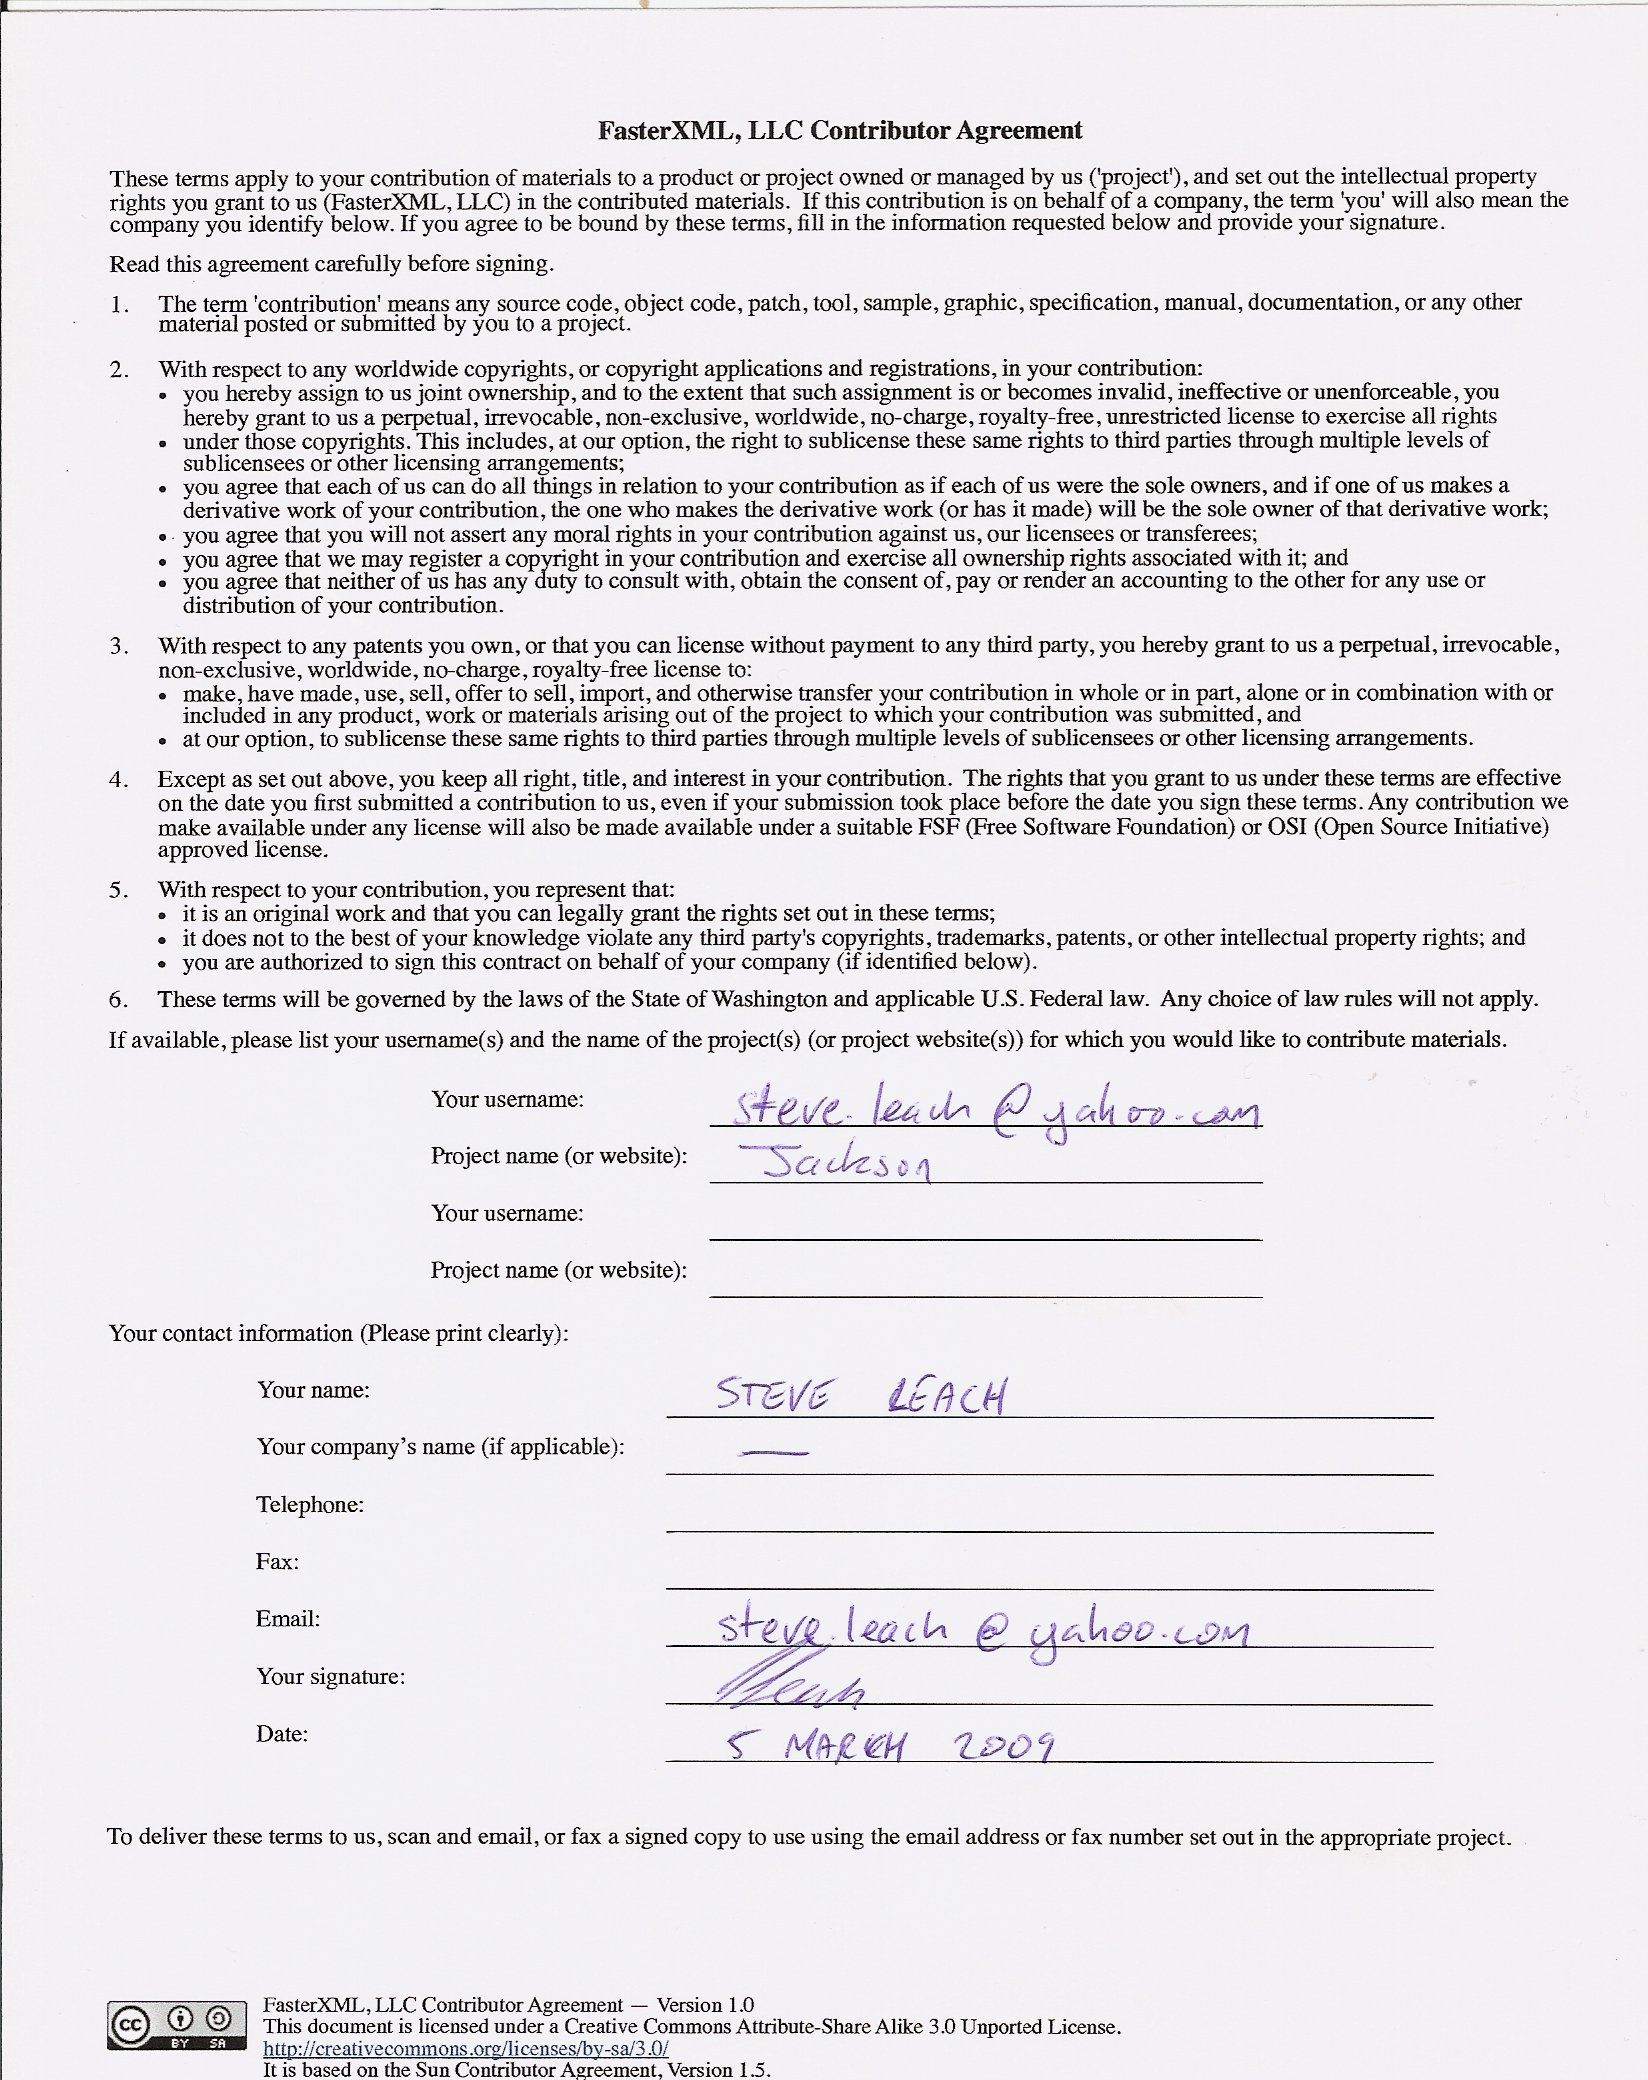 FasterXML, LLC Contributor Agreement
These terms apply to your contribution of materials to a product or project owned or managed by us ('project'), and set out the intellectual property
rights you grant to us (FasterXML, LLC) in the contributed materials.  If this contribution is on behalf of a company, the term 'you' will also mean the
company you identify below. If you agree to be bound by these terms, fill in the information requested below and provide your signature.
Read this agreement carefully before signing.
1. The term 'contribution' means any source code, object code, patch, tool, sample, graphic, specification, manual, documentation, or any other
material posted or submitted by you to a project.
2. With respect to any worldwide copyrights, or copyright applications and registrations, in your contribution:
• you hereby assign to us joint ownership, and to the extent that such assignment is or becomes invalid, ineffective or unenforceable, you
hereby grant to us a perpetual, irrevocable, non-exclusive, worldwide, no-charge, royalty-free, unrestricted license to exercise all rights
• under those copyrights. This includes, at our option, the right to sublicense these same rights to third parties through multiple levels of
sublicensees or other licensing arrangements;
• you agree that each of us can do all things in relation to your contribution as if each of us were the sole owners, and if one of us makes a
derivative work of your contribution, the one who makes the derivative work (or has it made) will be the sole owner of that derivative work;
• you agree that you will not assert any moral rights in your contribution against us, our licensees or transferees;
• you agree that we may register a copyright in your contribution and exercise all ownership rights associated with it; and
• you agree that neither of us has any duty to consult with, obtain the consent of, pay or render an accounting to the other for any use or
distribution of your contribution.
3. With respect to any patents you own, or that you can license without payment to any third party, you hereby grant to us a perpetual, irrevocable,
non-exclusive, worldwide, no-charge, royalty-free license to:
• make, have made, use, sell, offer to sell, import, and otherwise transfer your contribution in whole or in part, alone or in combination with or
included in any product, work or materials arising out of the project to which your contribution was submitted, and
• at our option, to sublicense these same rights to third parties through multiple levels of sublicensees or other licensing arrangements.
4. Except as set out above, you keep all right, title, and interest in your contribution.  The rights that you grant to us under these terms are effective
on the date you first submitted a contribution to us, even if your submission took place before the date you sign these terms. Any contribution we
make available under any license will also be made available under a suitable FSF (Free Software Foundation) or OSI (Open Source Initiative)
approved license.
5. With respect to your contribution, you represent that:
• it is an original work and that you can legally grant the rights set out in these terms;
• it does not to the best of your knowledge violate any third party's copyrights, trademarks, patents, or other intellectual property rights; and
• you are authorized to sign this contract on behalf of your company (if identified below).
6. These terms will be governed by the laws of the State of Washington and applicable U.S. Federal law.  Any choice of law rules will not apply.
If available, please list your username(s) and the name of the project(s) (or project website(s)) for which you would like to contribute materials.
Your username: steve.leach@yahoo.com
Project name (or website): Jackson
Your username:
Project name (or website):
Your contact information (Please print clearly):
Your name: STEVE LEACH
Your company’s name (if applicable): —
Telephone:
Fax:
Email: steve.leach@yahoo.com
Your signature: Leach
Date: 5 MARCH 2009
To deliver these terms to us, scan and email, or fax a signed copy to use using the email address or fax number set out in the appropriate project.
cc BY SA
FasterXML, LLC Contributor Agreement — Version 1.0
This document is licensed under a Creative Commons Attribute-Share Alike 3.0 Unported License.
http://creativecommons.org/licenses/by-sa/3.0/
It is based on the Sun Contributor Agreement, Version 1.5.